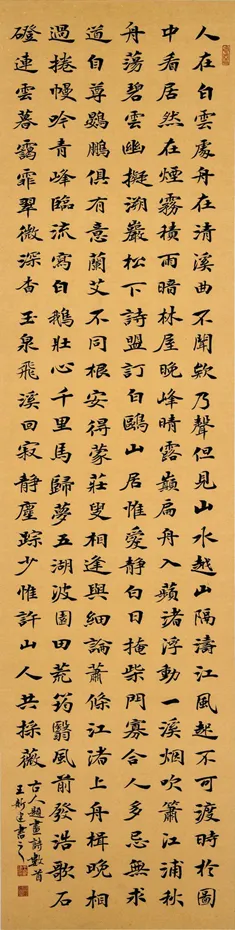 人在白雲處舟在清溪曲不聞欸乃聲但見山水越山隔濤江風起不可渡時於圖
中看居然在煙霧積雨暗林屋晚峰晴露巔扁舟入蘋渚浮動一溪烟吹簫江浦秋
舟蕩碧雲幽擬溯巖松下詩盟訂白鷗山居惟愛靜白日掩柴門寡合人多忌無求
道自尊鷃鵬俱有意蘭艾不同根安得蒙莊叟相逢與細論蕭條江渚上舟楫晚相
過捲幔吟青峰臨流寫白鵝壯心千里馬歸夢五湖波園田荒筠翳風前發浩歌石
磴連雲暮靄霏翠微深杳玉泉飛溪回寂靜塵踪少惟許山人共採薇
古人題畫詩數首
王書之